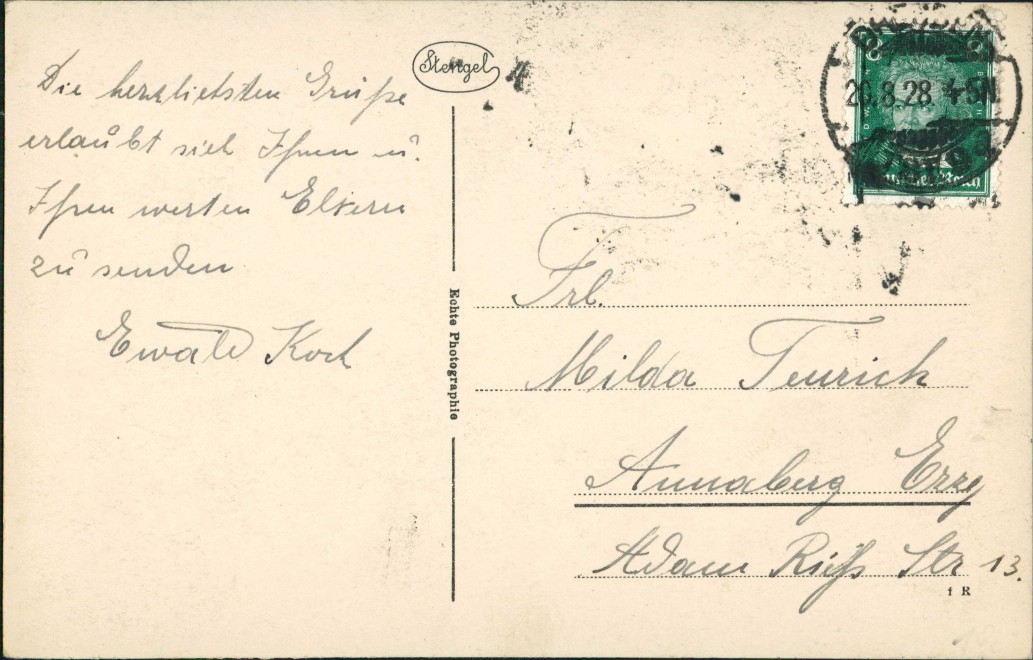 Die herzliebsten Grüße
erlaubt sich Ihnen u.
Ihren werten Eltern
zu senden
Ewald Koch
Stengel
Echte Photographie
8 8
20.8.28. 4-5N.
Deutsches Reich
Frl.
Milda Teurich
Annaberg Erzg
Adam Rieß Str 13.
f R